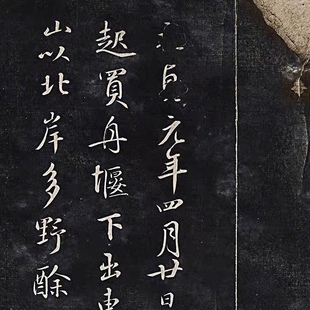 元年四月廿日
起買舟堰下出
山以北岸多野酴